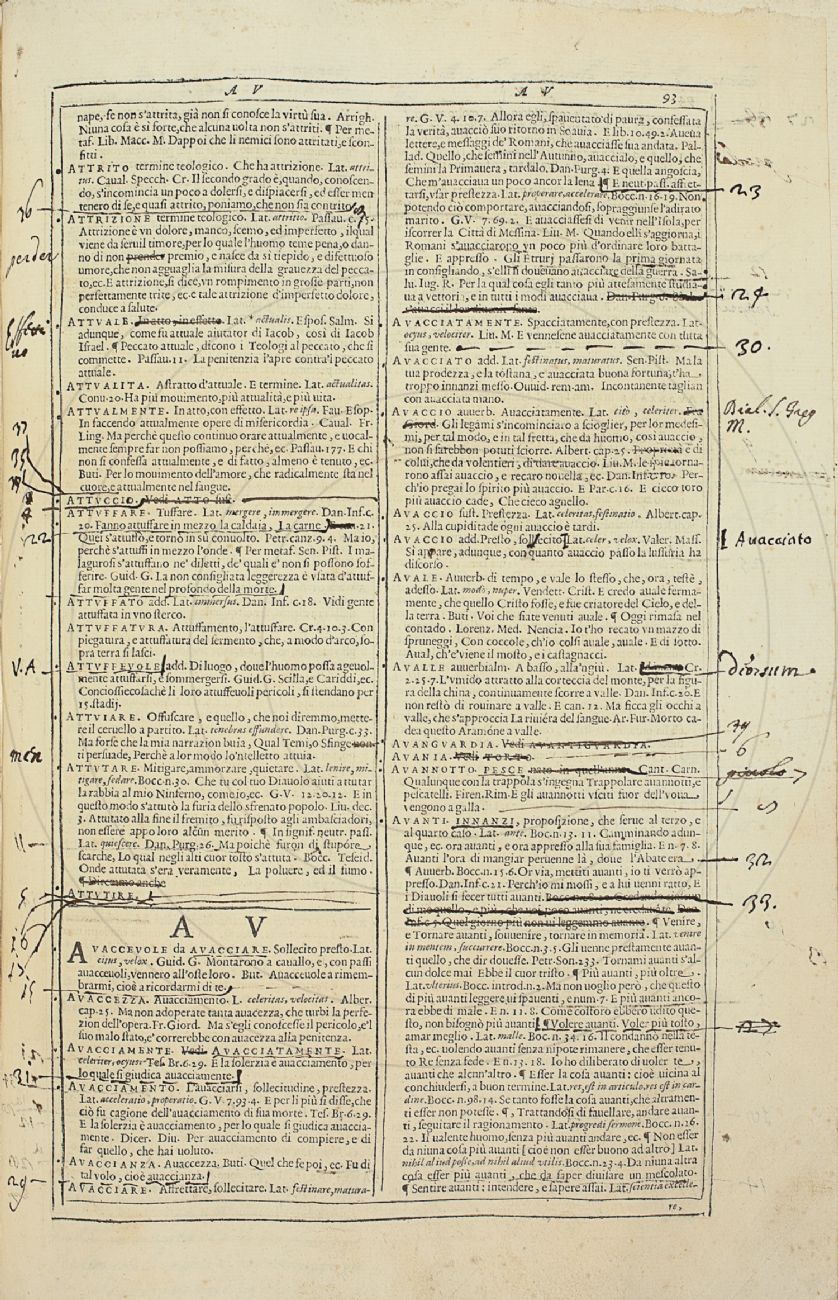 A V
A V
93
nape, se non s'attrita, già non si conosce la virtù sua. Arrigh.
Niuna cosa è sì forte, che alcuna uolta non s'attriti. ¶ Per me-
taf. Lib. Macc. M. Dappoi che li nemici sono attritati, e scon-
fitti.
ATTRITO termine teologico. Che ha attrizione. Lat. attri-
tus. Caual. Specch. Cr. Il secondo grado è, quando, conoscen-
do, s'incomincia un poco a dolersi, e dispiacersi, ed esser men
tenero di se, e quasi attrito, poniamo, che non sia contrito.
ATTRIZIONE termine teologico. Lat. attritio. Passau. c. 75.
Attrizione è vn dolore, manco, scemo, ed imperfetto, il qual
viene da seruil timore, per lo quale l'huomo teme pena, o dan-
no di non prender premio, e nasce da sì tiepido, e difettuoso
umore, che non agguaglia la misura della grauezza del pecca-
to, ec. E attrizione, si dice, vn rompimento in grosse parti, non
perfettamente trite, ec. e tale attrizione d'imperfetto dolore,
conduce a salute.
ATTVALE. In atto, in effetto. Lat. actualis. Espos. Salm. Sì
adunque, come fù attuale aiutator di Iacob, così di Iacob
Israel. ¶ Peccato attuale, dicono i Teologi al peccato, che si
commette. Passau. 11. La penitenzia l'apre contra'l peccato
attuale.
ATTVALITA. Astratto d'attuale. E termine. Lat. actualitas.
Conu. 20. Ha più mouimento, più attualità, e più vita.
ATTVALMENTE. In atto, con effetto. Lat. re ipsa. Fau. Esop.
In faccendo attualmente opere di misericordia. Caual. Fr.
Ling. Ma perchè questo continuo orare attualmente, e uocal-
mente sempre far non possiamo, perchè, ec. Passau. 177. E chi
non si confessa attualmente, e di fatto, almeno è tenuto, ec.
Buti. Per lo mouimento dell'amore, che radicalmente sta nel
cuore, e attualmente nel sangue.
ATTVCCIO. Vedi ATTO sust.
ATTVFFARE. Tuffare. Lat. mergere, immergere. Dan. Inf. c.
20. Fanno attuffare in mezzo la caldaia, La carne 21.
Quei s'attuffò, e tornò in sù conuolto. Petr. canz. 9. 4. Ma io,
perchè s'attuffi in mezzo l'onde. ¶ Per metaf. Sen. Pist. I ma-
lagurosi s'attuffano ne' diletti, de' quali e' non si possono sof-
ferire. Guid. G. La non consigliata leggerezza è vsata d'attuf-
far molta gente nel profondo della morte.
ATTVFFATO add. Lat. immersus. Dan. Inf. c. 18. Vidi gente
attuffata in vno sterco.
ATTVFFATVRA. Attuffamento, l'attuffare. Cr. 4. 10. 3. Con
piegatura, e attuffatura del sermento, che, a modo d'arco, so-
pra terra si lasci.
ATTVFFEVOLE add. Di luogo, doue l'huomo possa ageuol-
mente attuffarsi, e sommergersi. Guid. G. Scilla, e Cariddi, ec.
Conciossiecosachè li loro attuffeuoli pericoli, si stendano per
15. stadij.
ATTVIARE. Offuscare, e quello, che noi diremmo, mette-
re il ceruello a partito. Lat. tenebras effundere. Dan. Purg. c. 33.
Ma forse che la mia narrazion buia, Qual Temi, o Sfinge
ti persuade, Perchè a lor modo lo'ntelletto attuia.
ATTVTARE. Mitigare, ammorzare, quietare. Lat. lenire, mi-
tigare, sedare. Bocc. n. 30. Che tu col tuo Diauolo aiuti a attutar
la rabbia al mio Ninferno, com'e io, ec. G. V. 12. 20. 12. E in
questo modo s'attutò la furia dello sfrenato popolo. Liu. dec.
3. Attutato alla fine il fremito, fu risposto agli ambasciadori,
non essere appo loro alcun merito. ¶ In signif. neutr. pass.
Lat. quiescere. Dan. Purg. 26. Ma poichè furon di stupore
scarche, Lo qual negli alti cuor tosto s'attuta. Bocc. Teseid.
Onde attutata s'era veramente, La poluere, ed il fumo.
¶ Diremmo anche
ATTVTIRE.
A V
AVACCEVOLE da AVACCIARE. Sollecito presto. Lat.
citus, velox. Guid. G. Montarono a cauallo, e, con passi
auacceuoli, vennero all'oste loro. But. Auacceuole a rimem-
brarmi, cioè a ricordarmi di te.
AVACCEZZA. Auacciamento. L. celeritas, velocitas. Alber.
cap. 25. Ma non adoperate tanta auaccezza, che turbi la perfe-
zion dell'opera. Fr. Giord. Ma s'egli conoscesse il pericolo, e'l
suo malo stato, e' correrebbe con auaccezza alla penitenza.
AVACCIAMENTE. Vedi AVACCIATAMENTE. Lat.
celeriter, ocyus. Tes. Br. 6. 29. E la solerzia è auacciamento, per
lo quale si giudica auacciamente.
AVACCIAMENTO. L'auacciarsi, sollecitudine, prestezza.
Lat. acceleratio, properatio. G. V. 7. 93. 4. E per li più si disse, che
ciò fu cagione dell'auacciamento di sua morte. Tes. Br. 6. 29.
E la solerzia è auacciamento, per lo quale si giudica auaccia-
mente. Dicer. Diu. Per auacciamento di compiere, e di
far quello, che hai uoluto.
AVACCIANZA. Auaccezza. Buti. Quel che se poi, ec. Fu di
tal volo, cioè auaccianza.
AVACCIARE. Affrettare, sollecitare. Lat. festinare, matura-
re. G. V. 4. 10. 7. Allora egli, spauentato di paura, confessata
la verità, auacciò suo ritorno in Soauia. E lib. 10. 49. 2. Aueua
lettere, e messaggi de' Romani, che auacciasse sua andata. Pal-
lad. Quello, che semini nell'Autunno, auaccialo, e quello, che
semini la Primauera, tardalo. Dan. Purg. 4. E quella angoscia,
Che m'auacciaua un poco ancor la lena ¶ E neut. pass. affret-
tarsi, vsar prestezza. Lat. properare, accelerare. Bocc. n. 16. 19. Non
potendo ciò comportare, auacciandosi, sopraggiunse l'adirato
marito. G. V. 7. 69. 2. E auacciassesi di venir nell'Isola, per
iscorrer la Città di Messina. Liu. M. Quando elli s'aggiorna, i
Romani s'auacciarono vn poco più d'ordinare loro batta-
glie. E appresso. Gli Etturj passarono la prima giornata
in consigliando, s'elli si doueuano auacciare della guerra. Sa-
lu. Iug. R. Per la qual cosa egli tanto più attesamente studia-
ua a vettori, e in tutti i modi auacciaua.
AVACCIATAMENTE. Spacciatamente, con prestezza. Lat.
ocyus, velociter. Liu. M. E vennesene auacciatamente con tutta
sua gente.
AVACCIATO add. Lat. festinatus, maturatus. Sen. Pist. Ma la
tua prodezza, e la tostana, e auacciata buona fortuna, t'ha
troppo innanzi messo. Ouuid. rem. am. Incontanente taglian
con auacciata mano.
AVACCIO auuerb. Auacciatamente. Lat. citò, celeriter. Fra
Giord. Gli legami s'incominciaro a scioglier, per lor medesi-
mi, per tal modo, e in tal fretta, che da huomo, così auaccio,
non si sarebbon potuti sciorre. Albert. cap. 25. Proprietà è di
colui, che da volentieri, di dare auaccio. Liu. M. le spie torna-
rono assai auaccio, e recaro nouella, ec. Dan. Inf. c. 10. Per-
ch'io pregai lo spirito più auaccio. E Par. c. 16. E cieco toro
più auaccio cade, Che cieco agnello.
AVACCIO sust. Prestezza. Lat. celeritas, festinatio. Albert. cap.
25. Alla cupiditade ogni auaccio è tardi.
AVACCIO add. Presto, sollecito Lat. celer, velox. Valer. Mass.
Si appare, adunque, con quanto auaccio passo la lussuria ha
discorso.
AVALE. Auuerb. di tempo, e vale lo stesso, che, ora, testè,
adesso. Lat. modò, nuper. Vendett. Crist. E credo auale ferma-
mente, che quello Cristo fosse, e fue criatore del Cielo, e del-
la terra. Buti. Voi che siate venuti auale. ¶ Oggi rimasa nel
contado. Lorenz. Med. Nencia. Io t'ho recato vn mazzo di
spruneggi, Con coccole, ch'io colsi auale, auale. E di sotto.
Aual, ch'e' viene il mosto, e i castagnacci.
AVALLE auuerbialm. A basso, all'agiù. Lat. Cr.
2. 25. 7. L'vmido attratto alla corteccia del monte, per la figu-
ra della china, continuamente scorre a valle. Dan. Inf. c. 20. E
non restò di rouinare a valle. E can. 12. Ma ficca gli occhi a
valle, che s'approccia La riuiera del sangue. Ar. Fur. Morto ca-
dea questo Aramone a valle.
AVANGVARDIA. Vedi AVANTIGVARDIA.
AVANIA. Vedi TORTO.
AVANNOTTO. PESCE nato in quell'anno. Cant. Carn.
Qualunque con la trappola s'ingegna Trappolare auannotti, e
pescatelli. Firen. Rim. E gli auannotti vsciti fuor dell'uoua
vengono a galla.
AVANTI. INNANZI, proposizione, che serue al terzo, e
al quarto caso. Lat. ante. Bocc. n. 13. 11. Camminando adun-
que, ec. ora auanti, e ora appresso alla sua famiglia. E n. 7. 8.
Auanti l'ora di mangiar peruenne là, doue l'Abate era
¶ Auuerb. Bocc. n. 15. 6. Or via, mettiti auanti, io ti verrò ap-
presso. Dan. Inf. c. 21. Perch'io mi mossi, e a lui uenni ratto, E
i Diauoli si fecer tutti auanti.
¶ Venire,
e Tornare auanti, souuenire, tornare in memoria. Lat. venire
in mentem, succurrere. Bocc. n. 35. Gli uenne prestamente auan-
ti quello, che dir douesse. Petr. Son. 233. Tornami auanti s'al-
cun dolce mai Ebbe il cuor tristo. ¶ Più auanti, più oltre.
Lat. vlterius. Bocc. introd. n. 2. Ma non uoglio però, che questo
di più auanti leggere ui spauenti, e num. 7. E più auanti anco-
ra ebbe di male. E n. 11. 8. Come costoro ebbero udito que-
sto, non bisognò più auanti ¶ Volere auanti. Voler più tosto,
amar meglio. Lat. malle. Bocc. n. 34. 16. Il condannò nella te-
sta, ec. uolendo auanti senza nipote rimanere, che esser tenu-
to Re senza fede. E n. 13. 18. Io ho diliberato di uoler te,
auanti che alcun'altro. ¶ Esser la cosa auanti: cioè uicina al
conchiudersi, a buon termine. Lat. res est in articulo, res est in car-
dine. Bocc. n. 98. 14. Se tanto fosse la cosa auanti, che altramen-
ti esser non potesse. ¶, Trattandosi di fauellare, andare auan-
ti, seguitare il ragionamento. Lat. progredi sermone. Bocc. n. 16.
22. Il ualente huomo, senza più auanti andare, ec. ¶ Non esser
da niuna cosa più auanti [cioè non esser buono ad altro] Lat.
nihil aliud posse, ad nihil aliud vtilis. Bocc. n. 23. 4. Da niuna altra
cosa esser più auanti, che da saper diuisare un mescolato.
¶ Sentire auanti: intendere, e sapere assai. Lat. scientia excelle-
re,
36
perder
35
22
V. A
11
15
31
29
23
29
30.
Dial. S. Greg
M.
Auacciato
deorsum.
32
33.